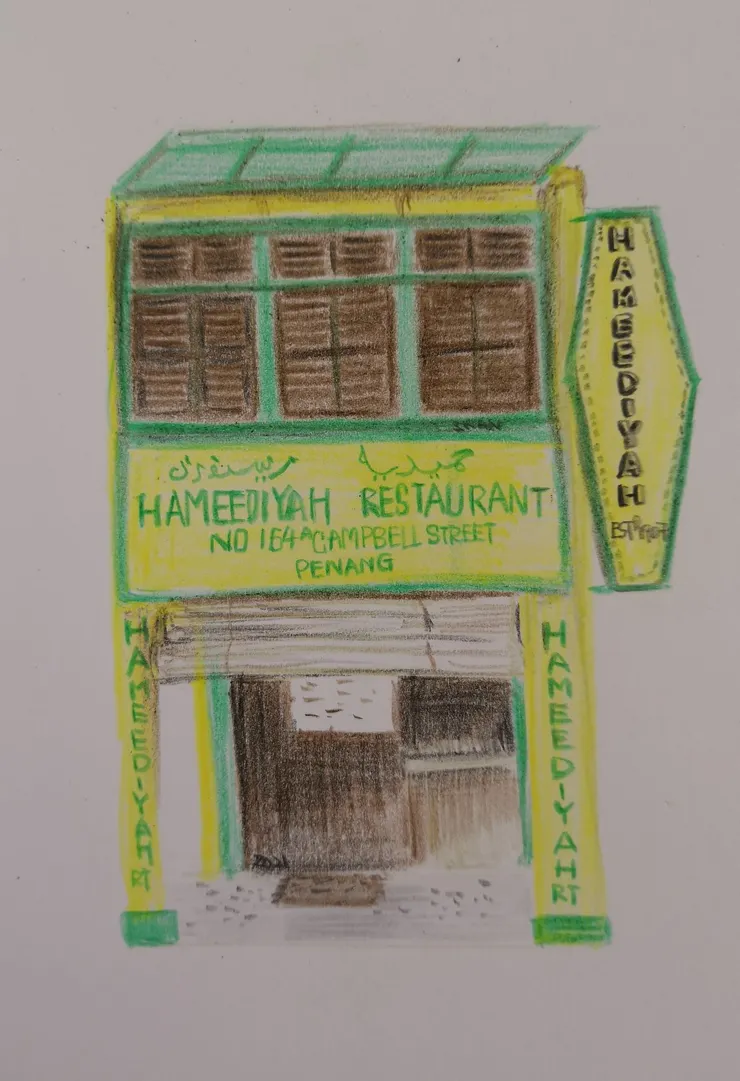 HAMEEDIYAH
EST 1907
حميديا ريستورن
HAMEEDIYAH RESTAURANT
NO 164A CAMPBELL STREET
PENANG
HAMEEDIYAH RT
HAMEEDIYAH RT
2021